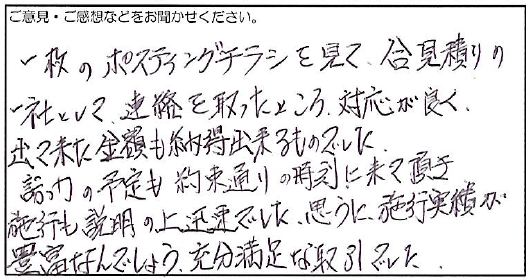 ご意見・ご感想などをお聞かせください。
一枚のポスティングチラシを見て、合見積りの
一社として、連絡を取ったところ、対応が良く、
出て来た金額も納得出来るものでした。
の予定も約束通りの時刻に来て頂き
施行も説明の上迅速でした、思うに、施行実績が
豊富なんでしょう、充分満足な取引でした。